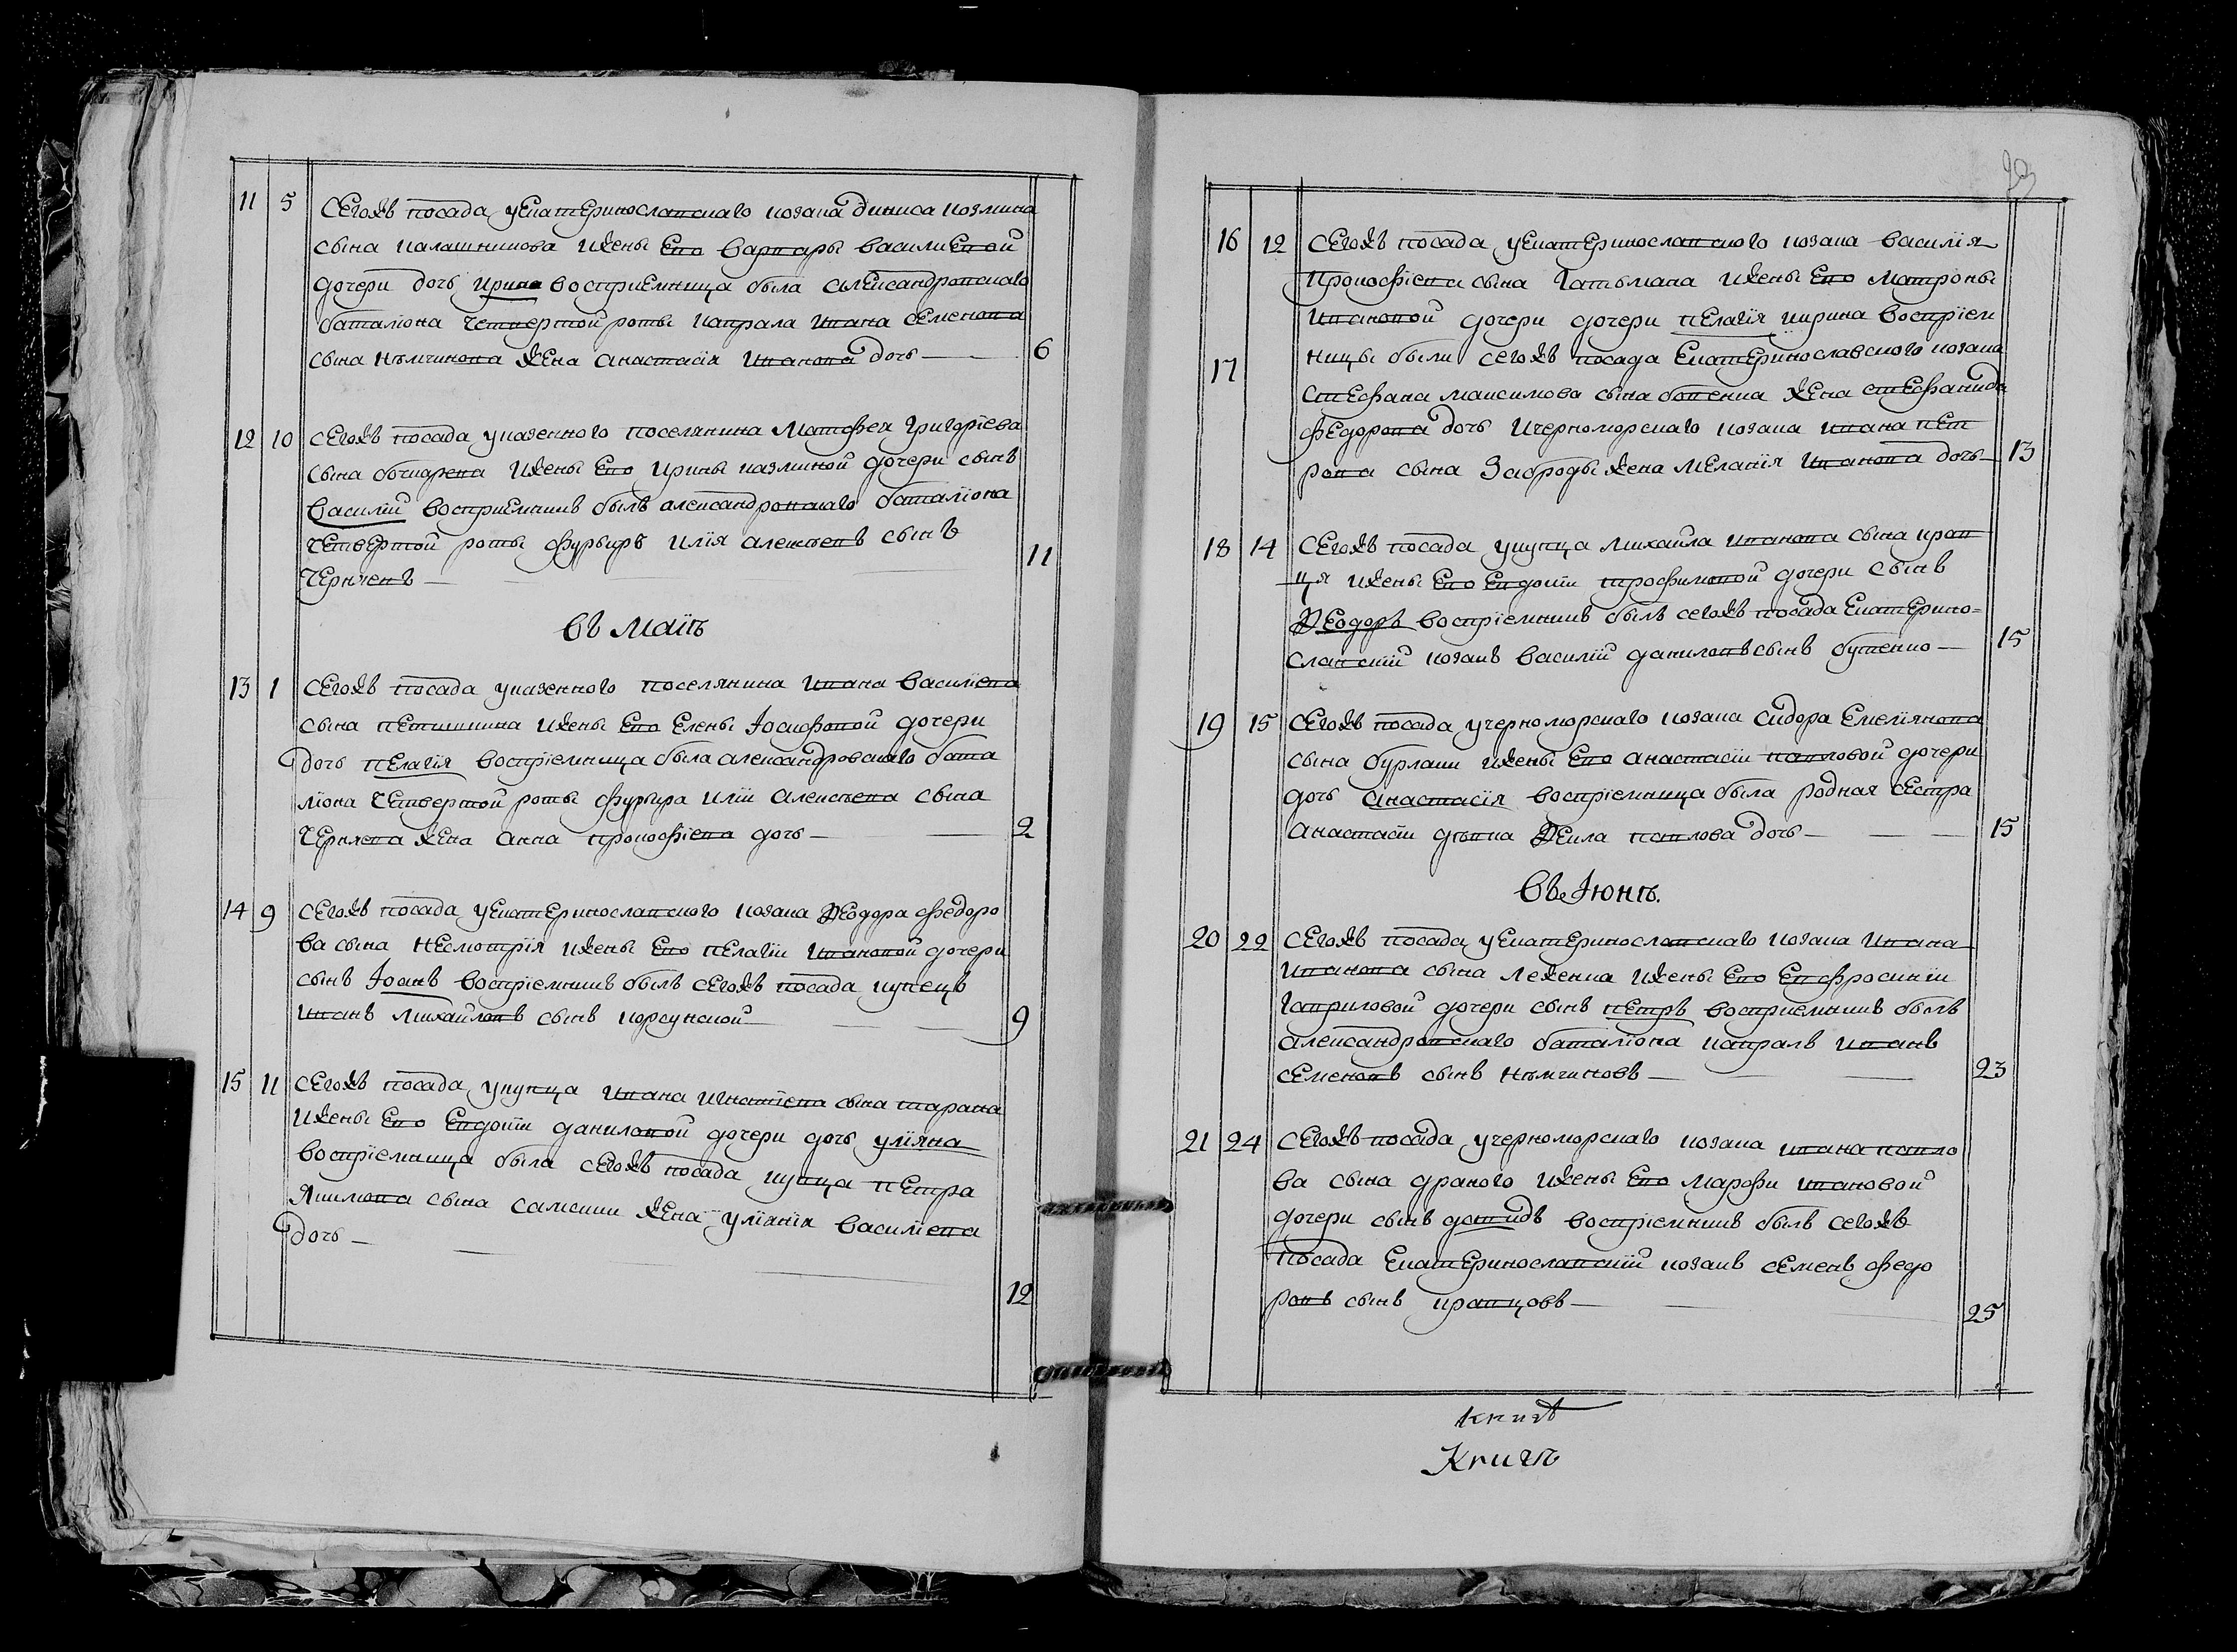 11 5 Сегожъ посада уекатеринославскаго козака диниса козмина
сына калашникова ижены Его варвары василиевой
дочери дочь ирина восприемница была александровскаго
баталиона Четвертой роты капрала ивана семенова
сына немчинова жена анастасия иванова дочь 6
12 10 Сегожъ посада указенного поселянина матфея григориева
сына обчарева ижены Его ирины казминой дочери сынъ
василий восприемникъ былъ александровскаго баталиона
Четвертой роты фурьиръ илия алексеевъ сынъ
Черняевъ 11
въ маiѣ
13 1 Сегожъ посада указенного поселянина ивана василиева
сына петинкина ижены Его Елены Iосифовой дочери
дочь пелагiя восприемница была александровскаго бата
лiона Четвертой роты фурьира илiи алексѣева сына
Черняева жена анна прокофiева дочь 2
14 9 Сегожъ посада уекатеринославского козака Ѳеодора федоро
ва сына несмотрiя ижены Его пелагiи ивановой дочери
сынъ Iоанъ воспрiемникъ былъ сегожъ посада купецъ
иванъ михайловъ сынъ корсунской 9
15 11 Сегожъ посада укупца ивана игнатiева сына тарана
ижены Его Евдокiи даниловой дочери дочь улiяна
воспрiемница была сегожъ посада купца петра
якимова сына самсики жена улiянiя василiева
дочь 12
16 12 Сегожъ посада уекатеринославского козака василiя
прокофiева сына гатьмана ижены Его матроны
ивановой дочери дочери пелагiя ирина воспрiем
17 ницы были сегожъ посада Екатеринославского козака
стефана максимова сына бовенка жена стефанида
федорова дочь ичерноморскаго козака ивана пет
рова сына Заброды жена меланiя иванова дочь 13
18 14 Сегожъ посада укупца михайла иванова сына крав
ця ижены Его Евдокiи трофимовой дочери сынъ
Ѳеодоръ воспрiемникъ былъ сегожъ посада Екатерино=
славскiй козакъ василiй даниловъ сынъ бутенко 15
19 15 Сегожъ посада учерноморскаго козака сидора Емелiянова
сына бурлаки ижены Его анастасiи павловой дочери
дочь анастасiя воспрiемница была родная сестра
анастасiи девка Ѳекла павлова дочь 15
въ Iюнѣ.
20 22 Сегожъ посада уекатеринославскаго козака ивана
иванова сына леженка ижены Его Евфросинiи
гавриловой дочери сынъ петръ воспрiемникъ былъ
александровскаго баталiона капралъ иванъ
семеновъ сынъ немчиновъ 23
21 24 Сегожъ посада учерноморскаго козака ивана павло
ва сына драного ижены Его марфы ивановой
дочери сынъ давидъ воспрiемникъ былъ сегожъ
посада Екатеринославскiй козакъ семенъ федо
ровъ сынъ кравцовъ 25